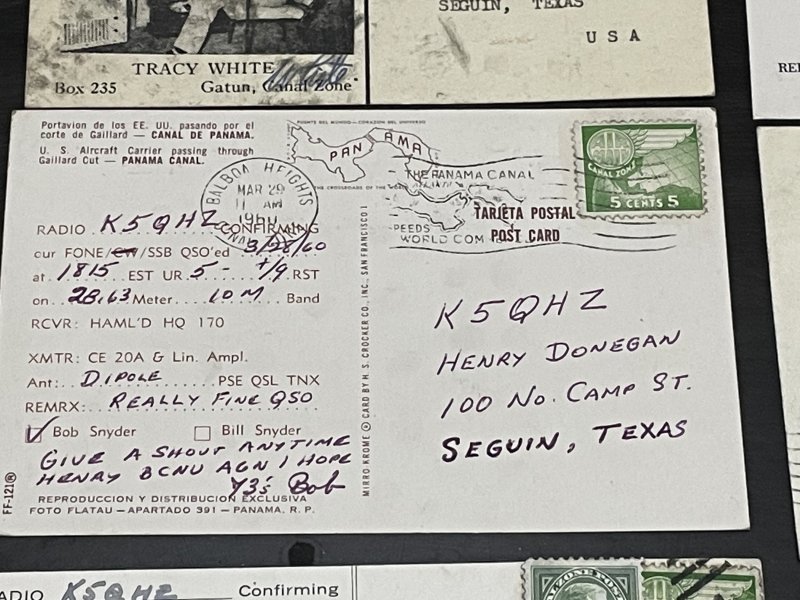 SEGUIN, TEXAS
U S A
TRACY WHITE
Box 235 Gatun, Canal Zone
Portavion de los EE. UU. pasando por el
corte de Gaillard — CANAL DE PANAMA.
U. S. Aircraft Carrier passing through
Gaillard Cut — PANAMA CANAL.
BALBOA HEIGHTS
MAR 29
11 AM
1960
PUENTE DEL MUNDO — CORAZON DEL UNIVERSO
PANAMA
THE CROSSROADS OF THE
THE PANAMA CANAL
SPEEDS
WORLD COM
TARJETA POSTAL
POST CARD
CANAL ZONE
5 CENTS 5
RADIO K5QHZ CONFIRMING
our FONE/CW/SSB QSO'ed 3/28/60
at 1815 EST UR 5 - +/9 RST
on 28.63 Meter 10M Band
RCVR: HAML'D HQ 170
XMTR: CE 20A & Lin. Ampl.
Ant: DIPOLE PSE QSL TNX
REMRX: REALLY FINE QSO
Bob Snyder Bill Snyder
GIVE A SHOUT ANYTIME
HENRY BCNU AGN I HOPE
73's Bob
REPRODUCCION Y DISTRIBUCION EXCLUSIVA
FOTO FLATAU — APARTADO 391 — PANAMA, R. P.
FF-121®
MIRRO-KROME ® CARD BY H. S. CROCKER CO., INC., SAN FRANCISCO 1
K5QHZ
HENRY DONEGAN
100 NO. CAMP ST.
SEGUIN, TEXAS
RADIO K5QHZ Confirming